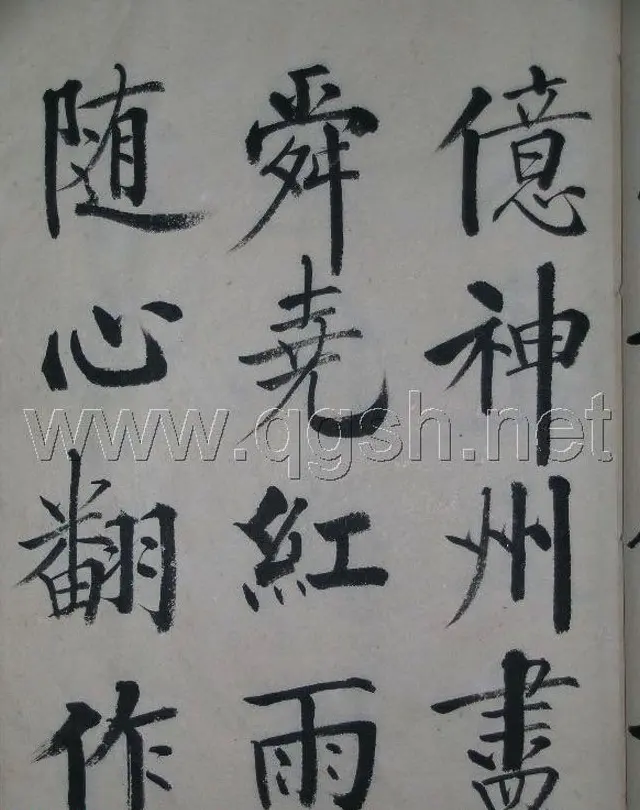 億神州盡
舜堯紅雨
随心翻作
www.qgsh.net